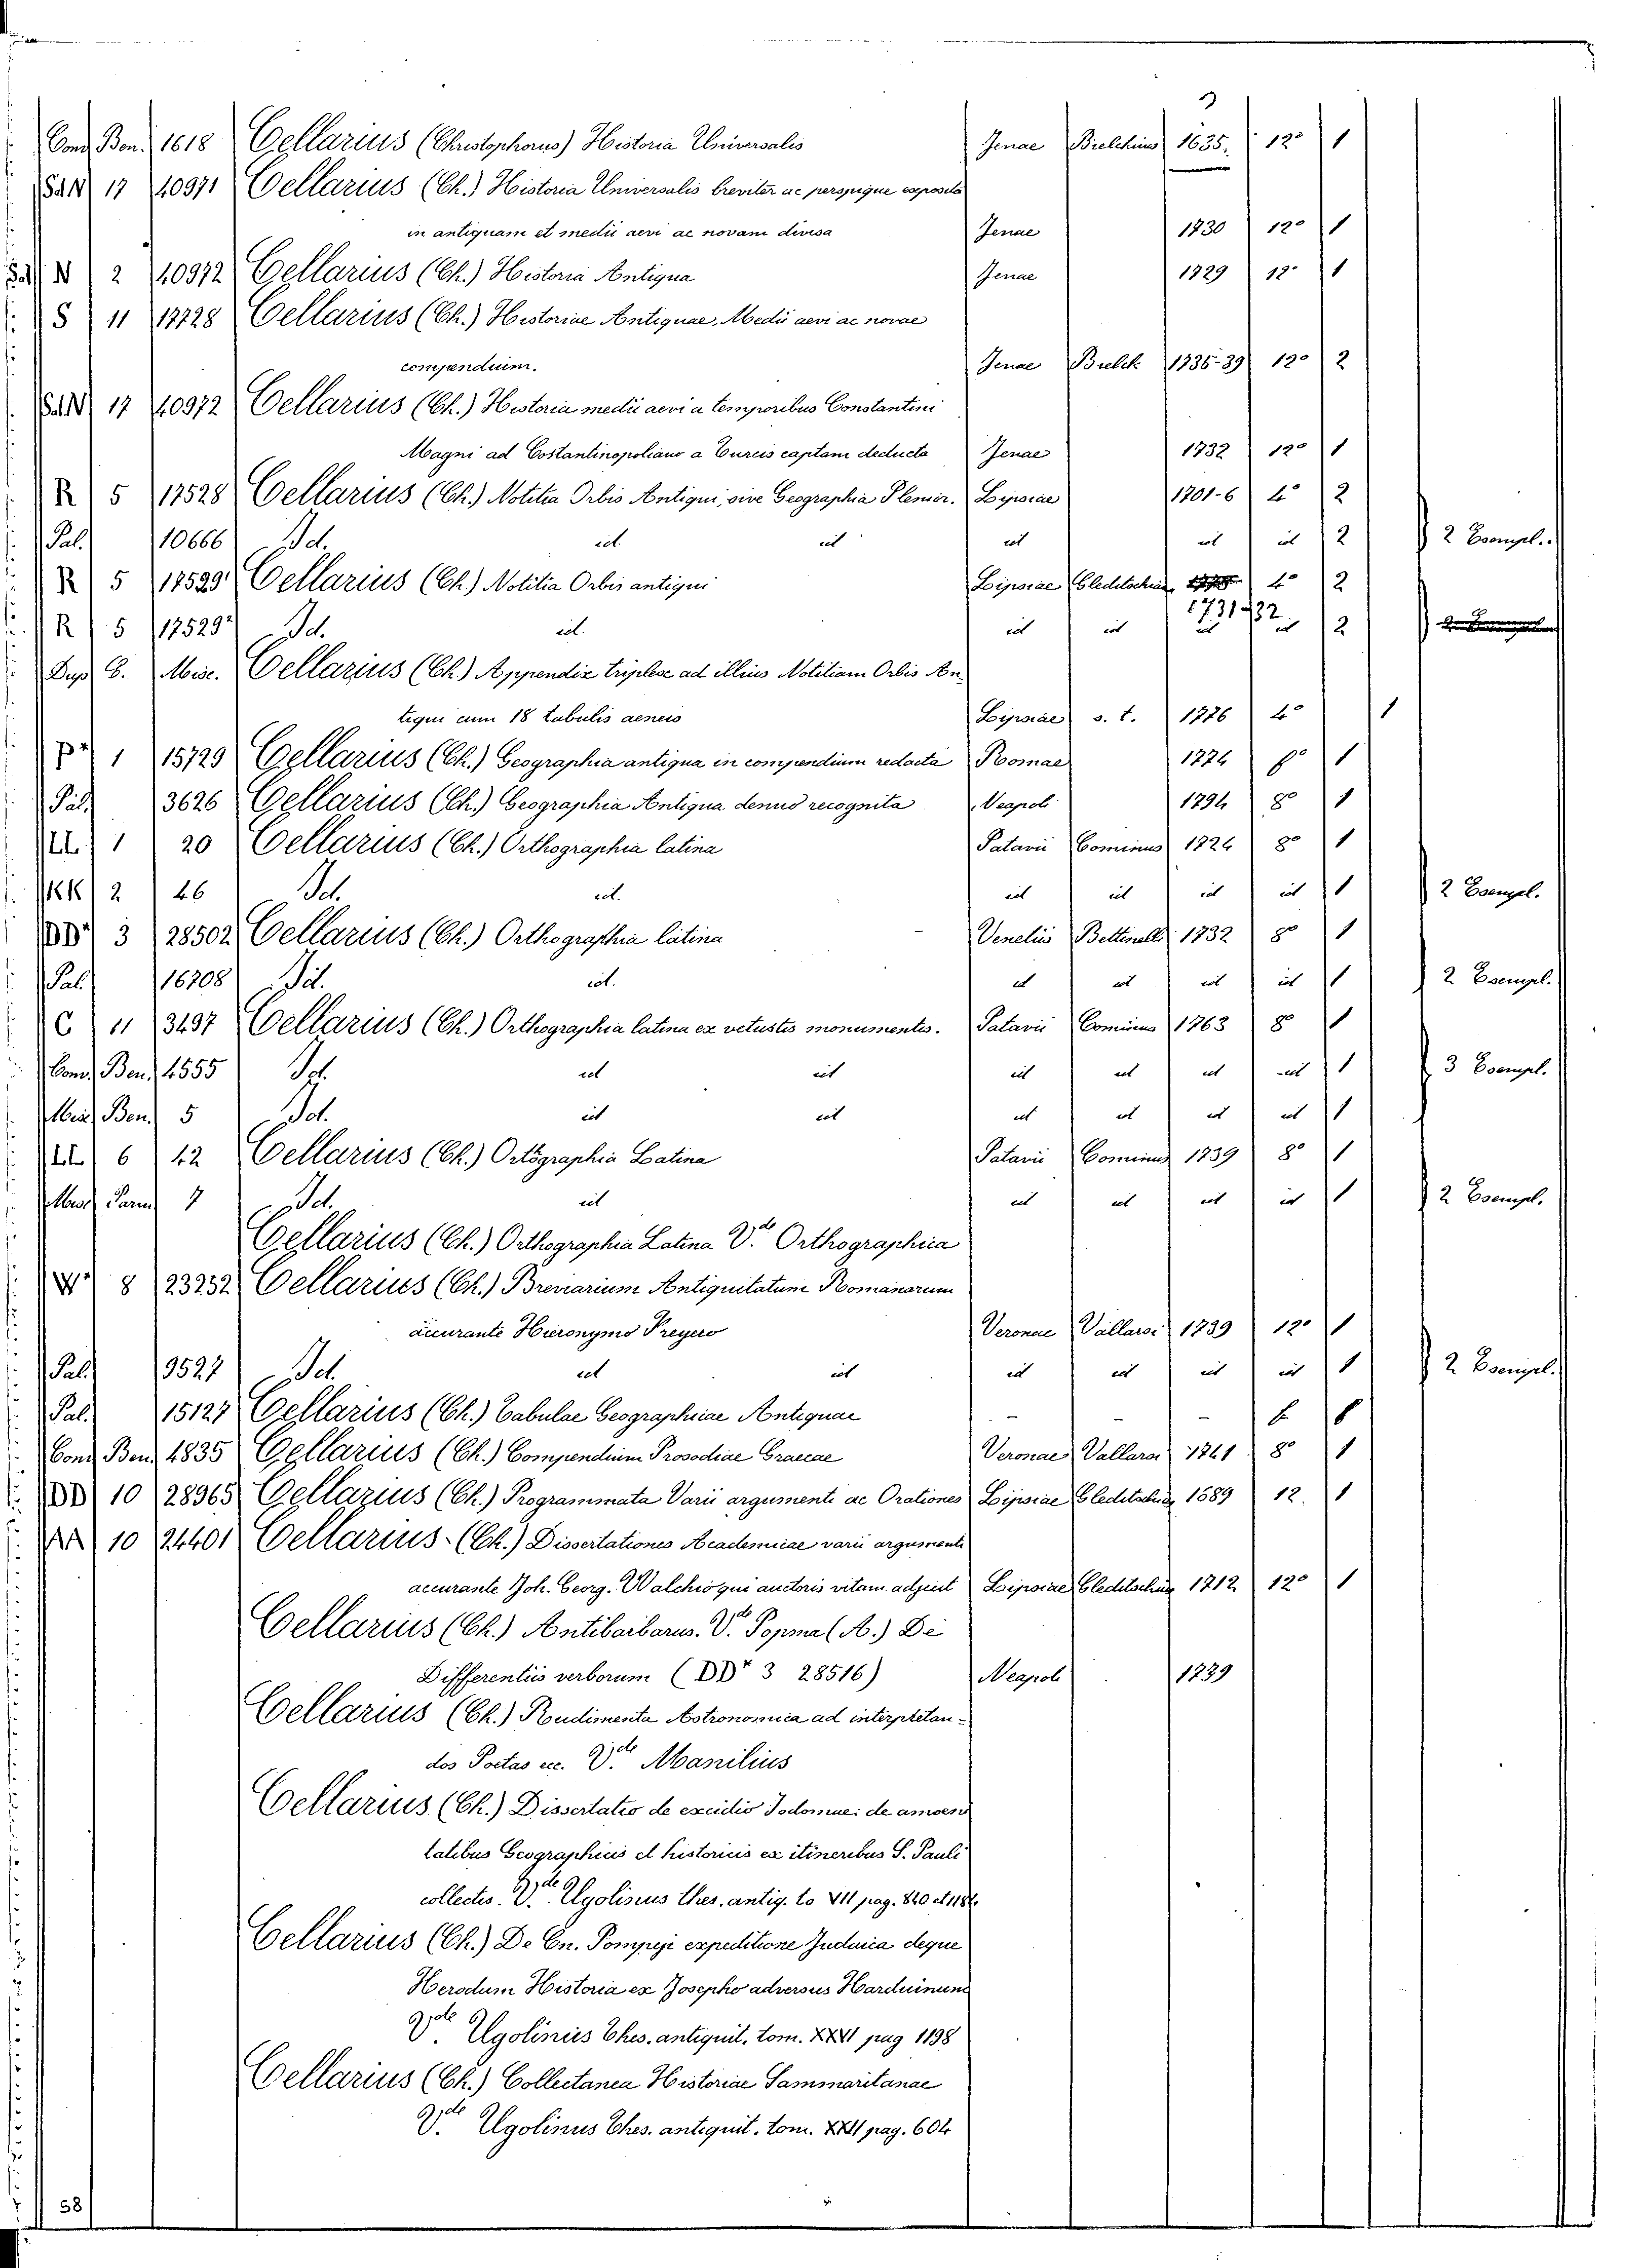 Cond Ben. 1618 Cellarius (Christophorus) Historia Universalis Jenae Bielchius 1635. 12° 1
S.d.N 17 40971 Cellarius (Ch.) Historia Universalis breviter ac perspique exposita
in antiquam et medii aevi ac novam divisa Jenae 1730 12° 1
S.d. N 2 40972 Cellarius (Ch.) Historia Antiqua Jenae 1729 12° 1
S 11 17728 Cellarius (Ch.) Historiae Antiquae, Medii aevi ac novae
compendium. Jenae Bielck 1735-39 12° 2
S.d.N 17 40972 Cellarius (Ch.) Historia medii aevi a temporibus Constantini
Magni ad Costantinopolians a Turcis captam deducta Jenae 1732 12° 1
R 5 17528 Cellarius (Ch.) Notitia Orbis Antiqui, sive Geographia Plenior. Lipsiae 1701-6 4° 2
Pal. 10666 Id. id. id id id id 2 2 Esempl.
R 5 17529 Cellarius (Ch.) Notitia Orbis antiqui Lipsiae Gleditschius 4° 2
1731-32
R 5 17529² Id. id. id id id id 2
Dup. C. Misc. Cellarius (Ch.) Appendix triplex ad illius Notitiam Orbis An-
tiqui cum 18 tabulis aeneis Lipsiae s. t. 1776 4° 1
P 1 15729 Cellarius (Ch.) Geographia antiqua in compendium redacta Romae 1774 6° 1
Pal. 3626 Cellarius (Ch.) Geographia Antiqua denuo recognita Neapoli 1794 8° 1
LL 1 20 Cellarius (Ch.) Orthographia latina Patavii Cominus 1724 8° 1
KK 2 46 Id. id. id id id id 1 2 Esempl.
DD 3 28502 Cellarius (Ch.) Orthographia latina Venetiis Bettinelli 1732 8° 1
Pal. 16708 Id. id. id id id id 1 2 Esempl.
C 11 3497 Cellarius (Ch.) Orthographia latina ex vetustis monumentis. Patavii Cominus 1763 8° 1
Cond. Ben. 4555 Id. id id id id id id 1 3 Esempl.
Misc. Ben. 5 Id. id id id id id id 1
LL 6 42 Cellarius (Ch.) Ortografhia Latina Patavii Cominus 1739 8° 1
Misc. Parm 7 Id. id id id id id 1 2 Esempl.
Cellarius (Ch.) Orthographia Latina V.de Orthographica
W 8 23252 Cellarius (Ch.) Breviarium Antiquitatum Romanarum
accurante Hieronymo Freyero Veronae Vallarsi 1739 12° 1
Pal. 9527 Id. id id id id id id 1 2 Esempl.
Pal. 15127 Cellarius (Ch.) Tabulae Geographicae Antiquae - - - f. 1
Cond Ben. 4835 Cellarius (Ch.) Compendium Prosodiae Graecae Veronae Vallarsi 1741 8° 1
DD 10 28965 Cellarius (Ch.) Programmata Varii argumenti ac Orationes Lipsiae Gleditschius 1689 12. 1
AA 10 24401 Cellarius (Ch.) Dissertationes Academicae varii argumenti
accurante Joh. Georg. Walchio qui auctoris vitam adjecit Lipsiae Gleditschius 1712 12° 1
Cellarius (Ch.) Antibarbarus. V.de Popma (A.) De
Differentiis verborum (DDr 3 28516) Neapoli 1779
Cellarius (Ch.) Rudimenta Astronomica ad interpretan-
dos Poetas ec. V.de Manilius
Cellarius (Ch.) Dissertatio de excidio Sodomae: de amoeni
tatibus Geographicis et historicis ex itineribus S. Pauli
collectis. V.de Ugolinus thes. antiq. to VII pag. 820 et 1184
Cellarius (Ch.) De Cn. Pompeji expeditione Judaica deque
Herodum Historia ex Josepho adversus Harduinum
V.de Ugolinius Thes. antiquit. tom. XXVI pag 1198
Cellarius (Ch.) Collectanea Historiae Sammaritanae
V.de Ugolinus Thes. antiquit. tom. XXII pag. 604
58